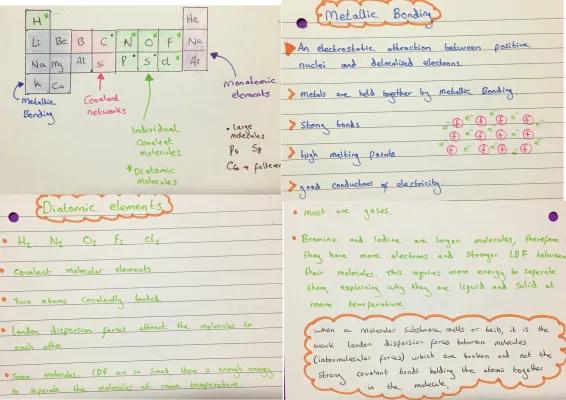 H *
He
Li Be B C • N * O * F * Ne
Na Mg Al Si P • S • Cl * Ar
K Ca
Metallic
Bonding
Covalent
networks
Individual
Covalent
molecules
* Diatomic
molecules
Monatomic
elements
• large
molecules
P4 S8
C60 →
Metallic Bonding
An electrostatic attraction between positive
nuclei and delocalised electrons.
> Metals are held together by Metallic Bonding.
> Strong bonds
> high melting points
> good conductors of electricity.
Diatomic elements
• H2 N2 O2 F2 Cl2
• Covalent molecular elements
• Two atoms covalently bonded
• London dispersion forces attract the molecules to
each other
• Some molecules, LDF are so small, there is enough energy
to seperate the molecules at room temperature.
• most are gases
• Bromine and Iodine are larger molecules, therefore
they have more electrons and stronger LDF between
their molecules. This requires more energy to seperate
them, explaining why they are liquid and solid at
room temperature
When a molecular substance melts or boils, it is the
weak london dispersion forces between molecules
(intermolecular forces) which are broken and not the
strong covalent bonds holding the atoms together
in the molecule.